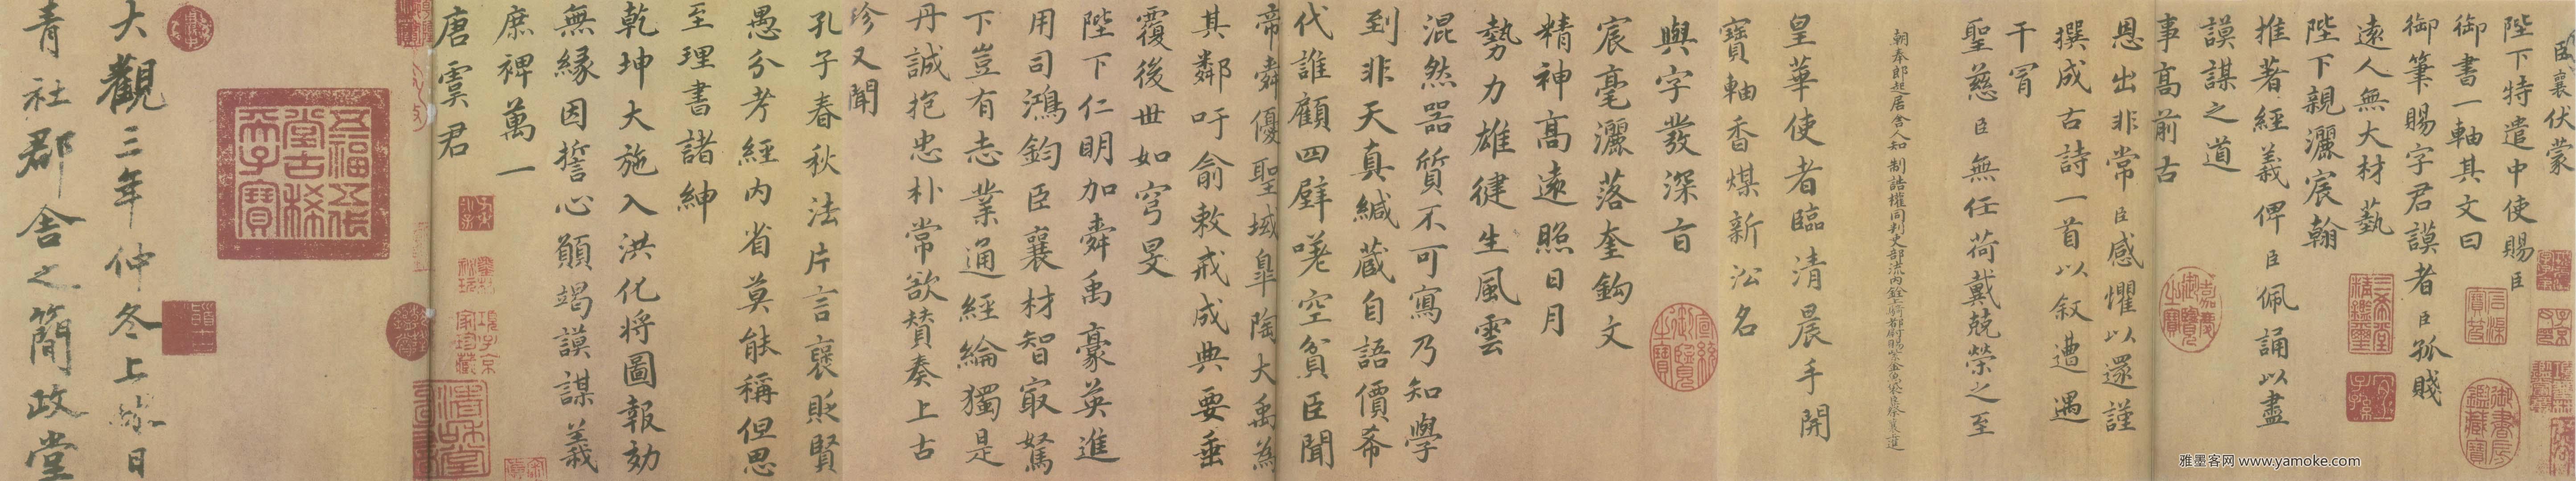 臣襄伏蒙
陛下特遣中使賜臣
御書一軸其文曰
御筆賜字君謨者臣孤賤
遠人無大材藝
陛下親灑宸翰
推著經義俾臣佩誦以盡
謨謀之道
事高前古
恩出非常臣感懼以還謹
撰成古詩一首以叙遭遇
干冒
聖慈臣無任荷戴兢榮之至
朝奉郎起居舍人知制誥權同判吏部流內銓上騎都尉賜紫金魚袋臣蔡襄上進
皇華使者臨清晨手開
寶軸香煤新沁名
與字發深旨
宸毫灑落奎鈎文
精神高遠照日月
勢力雄徤生風雲
混然器質不可寫乃知學
到非天真緘蔵自語價希
代誰顧四壁嗟空貧臣聞
帝舜優聖域皐陶大禹為
其鄰吁俞敕戒成典要垂
覆後世如穹旻
陛下仁明加舜禹豪英進
用司鴻鈞臣襄材智㝡駑
下豈有志業通經綸獨是
丹誠抱忠朴常欲賛奏上古
珍又聞
孔子春秋法片言褒貶賢
愚分考經內省莫能稱但思
至理書諸紳
乾坤大施入洪化将圖報効
無縁因誓心願竭謨謀義
庶裨萬一
唐虞君
五福五代堂古稀天子寶
大觀三年仲冬上澣日
青社郡舍之簡政堂
雅墨客网 www.yamoke.com